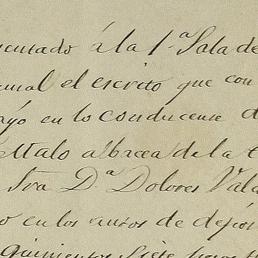 sentado á la 1ª Sala de
unal el escrito que con
ayo en lo conducense d
Attalo albacea de la t
Sra Dª Dolores Vald
o en los autos de depós
quinientos siete pesos